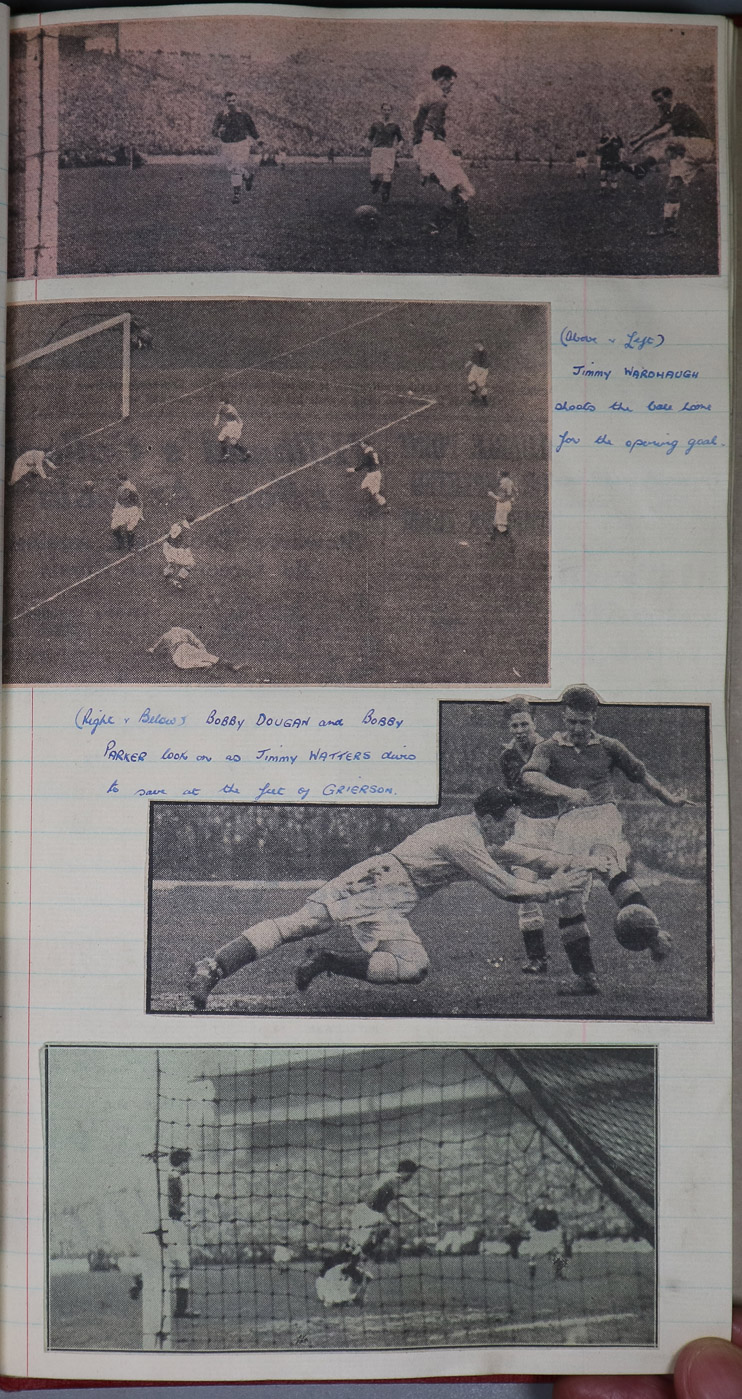 (Above & Left)
Jimmy WARDHAUGH
shoots the ball home
for the opening goal.
(Right & Below) BOBBY DOUGAN and BOBBY
PARKER look on as JIMMY WATTERS dives
to save at the feet of GRIERSON.